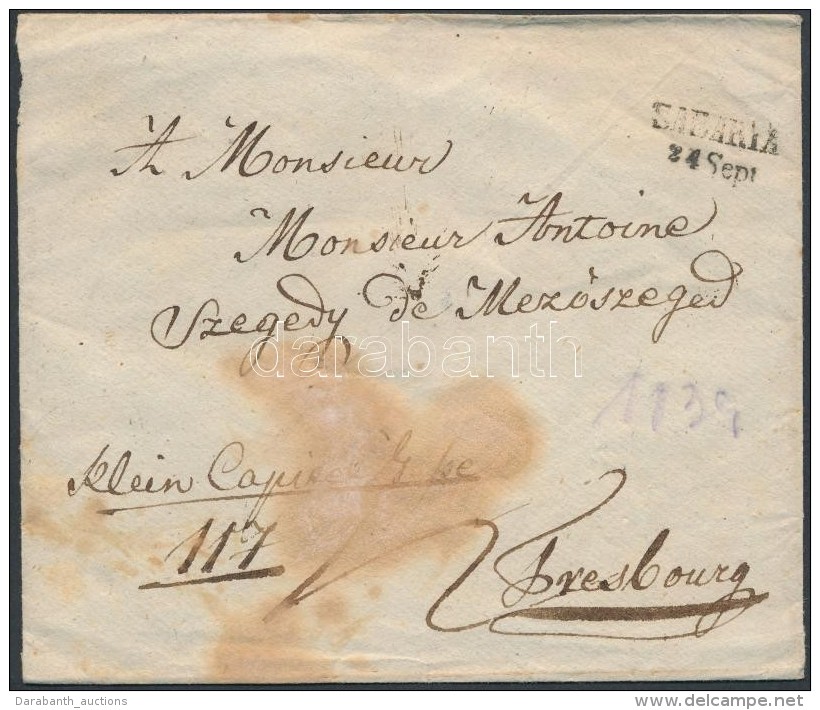 SABARIA
24 Sept
A Monsieur
Monsieur Antoine
Szegedy de Mezőszeged
darabanth
1839
Klein
117
Presbourg
Darabanth_auctions
www.delcampe.net